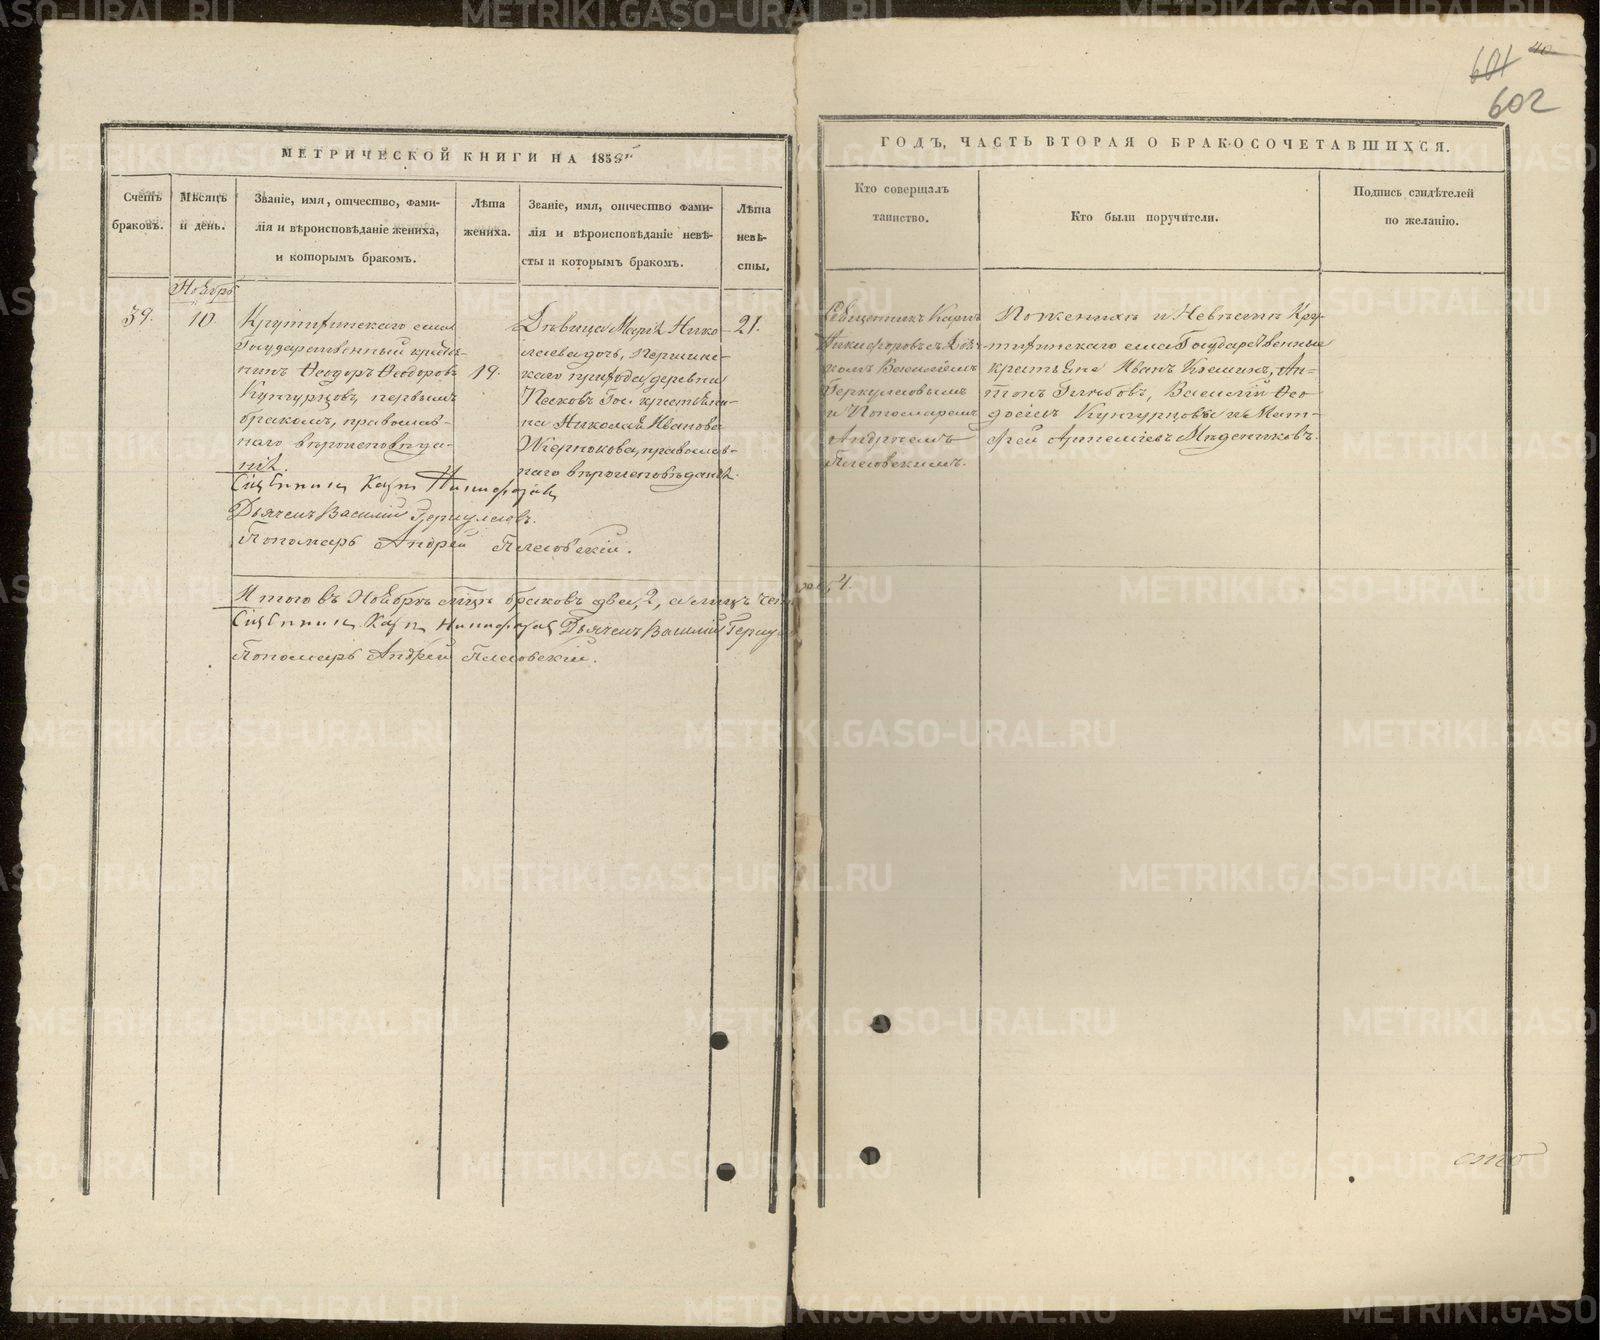 601 40
602
МЕТРИЧЕСКОЙ КНИГИ НА 185
ГОДЪ, ЧАСТЬ ВТОРАЯ О БРАКОСОЧЕТАВШИХСЯ.
Счетъ браковъ.
Мѣсяцъ и день.
Званіе, имя, отчество, фами-
лія и вѣроисповѣданіе жениха,
и которымъ бракомъ.
Лѣта жениха.
Званіе, имя, отчество фами-
лія и вѣроисповѣданіе невѣ-
сты и которымъ бракомъ.
Лѣта невѣ-
сты.
Кто совершалъ
таинство.
Кто были поручители.
Подпись свидѣтелей
по желанію.
Ноябрь
39.
10.
Крутихинскаго села
Государственный кресть-
нинъ Ѳеодоръ Ѳеодоровъ
Кунгурцовъ, первымъ
бракомъ, православ-
наго вѣроисповѣда-
нія.
19.
Дѣвица Марія Нико-
лаева дочь, Першин-
скаго прихода деревни
Песковъ Гос. крестьяни-
на Николая Иванова
православ-
наго вѣроисповѣданія.
21.
Священникъ Карпъ
Никифоровъ съ Дьяч-
комъ Василіемъ
Геркулесовымъ
и Пономаремъ
Андреемъ
По женихѣ и Невѣстѣ Кру-
тихинскаго села Государственные
крестьяне Иванъ Ан-
тонъ Василій Ѳео-
досіевъ Кунгурцовъ и Мат-
фей Артеміевъ Мѣдениковъ.
Священникъ Карпъ Никифоровъ
Дьячекъ Василій Геркулесовъ.
Пономарь Андрей
Итого въ Ноябрѣ м-цѣ браковъ два, 2, а лицъ четы
ре, 4.
Священникъ Карпъ Никифоровъ Дьячекъ Василій Герку
Пономарь Андрей
METRIKI.GASO-URAL.RU